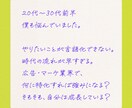 20代〜30代前半
僕も悩んでいました。
やりたいことが言語化できない。
時代の流れが早すぎる。
広告・マーケ業界で、
何に特化すれば強みになる？
そもそも、自分は成長している？